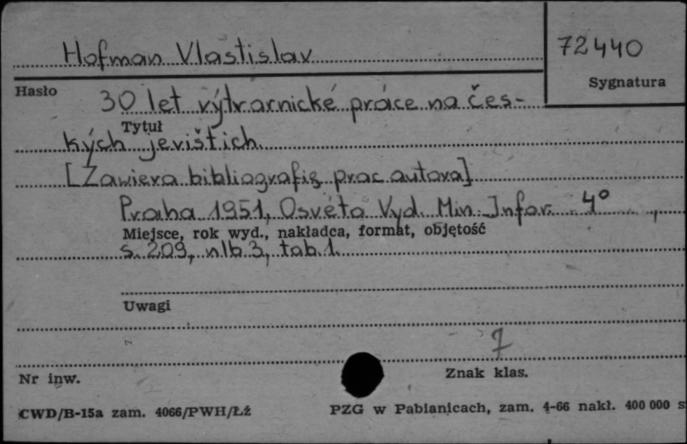 Hofman Vlastislav
72440
Hasło
Sygnatura
30 let výtvarnické práce na čes-
Tytuł
kých jevištích.
[Zawiera bibliografię prac autora]
Praha 1951, Osvěta Vyd. Min. Infor. 4°,
Miejsce, rok wyd., nakładca, format, objętość
s. 209, nlb. 3, tab. 1.
Uwagi
7
Nr inw.
Znak klas.
CWD/B-15a zam. 4066/PWH/Łż
PZG w Pabianicach, zam. 4-66 nakł. 400 000 s